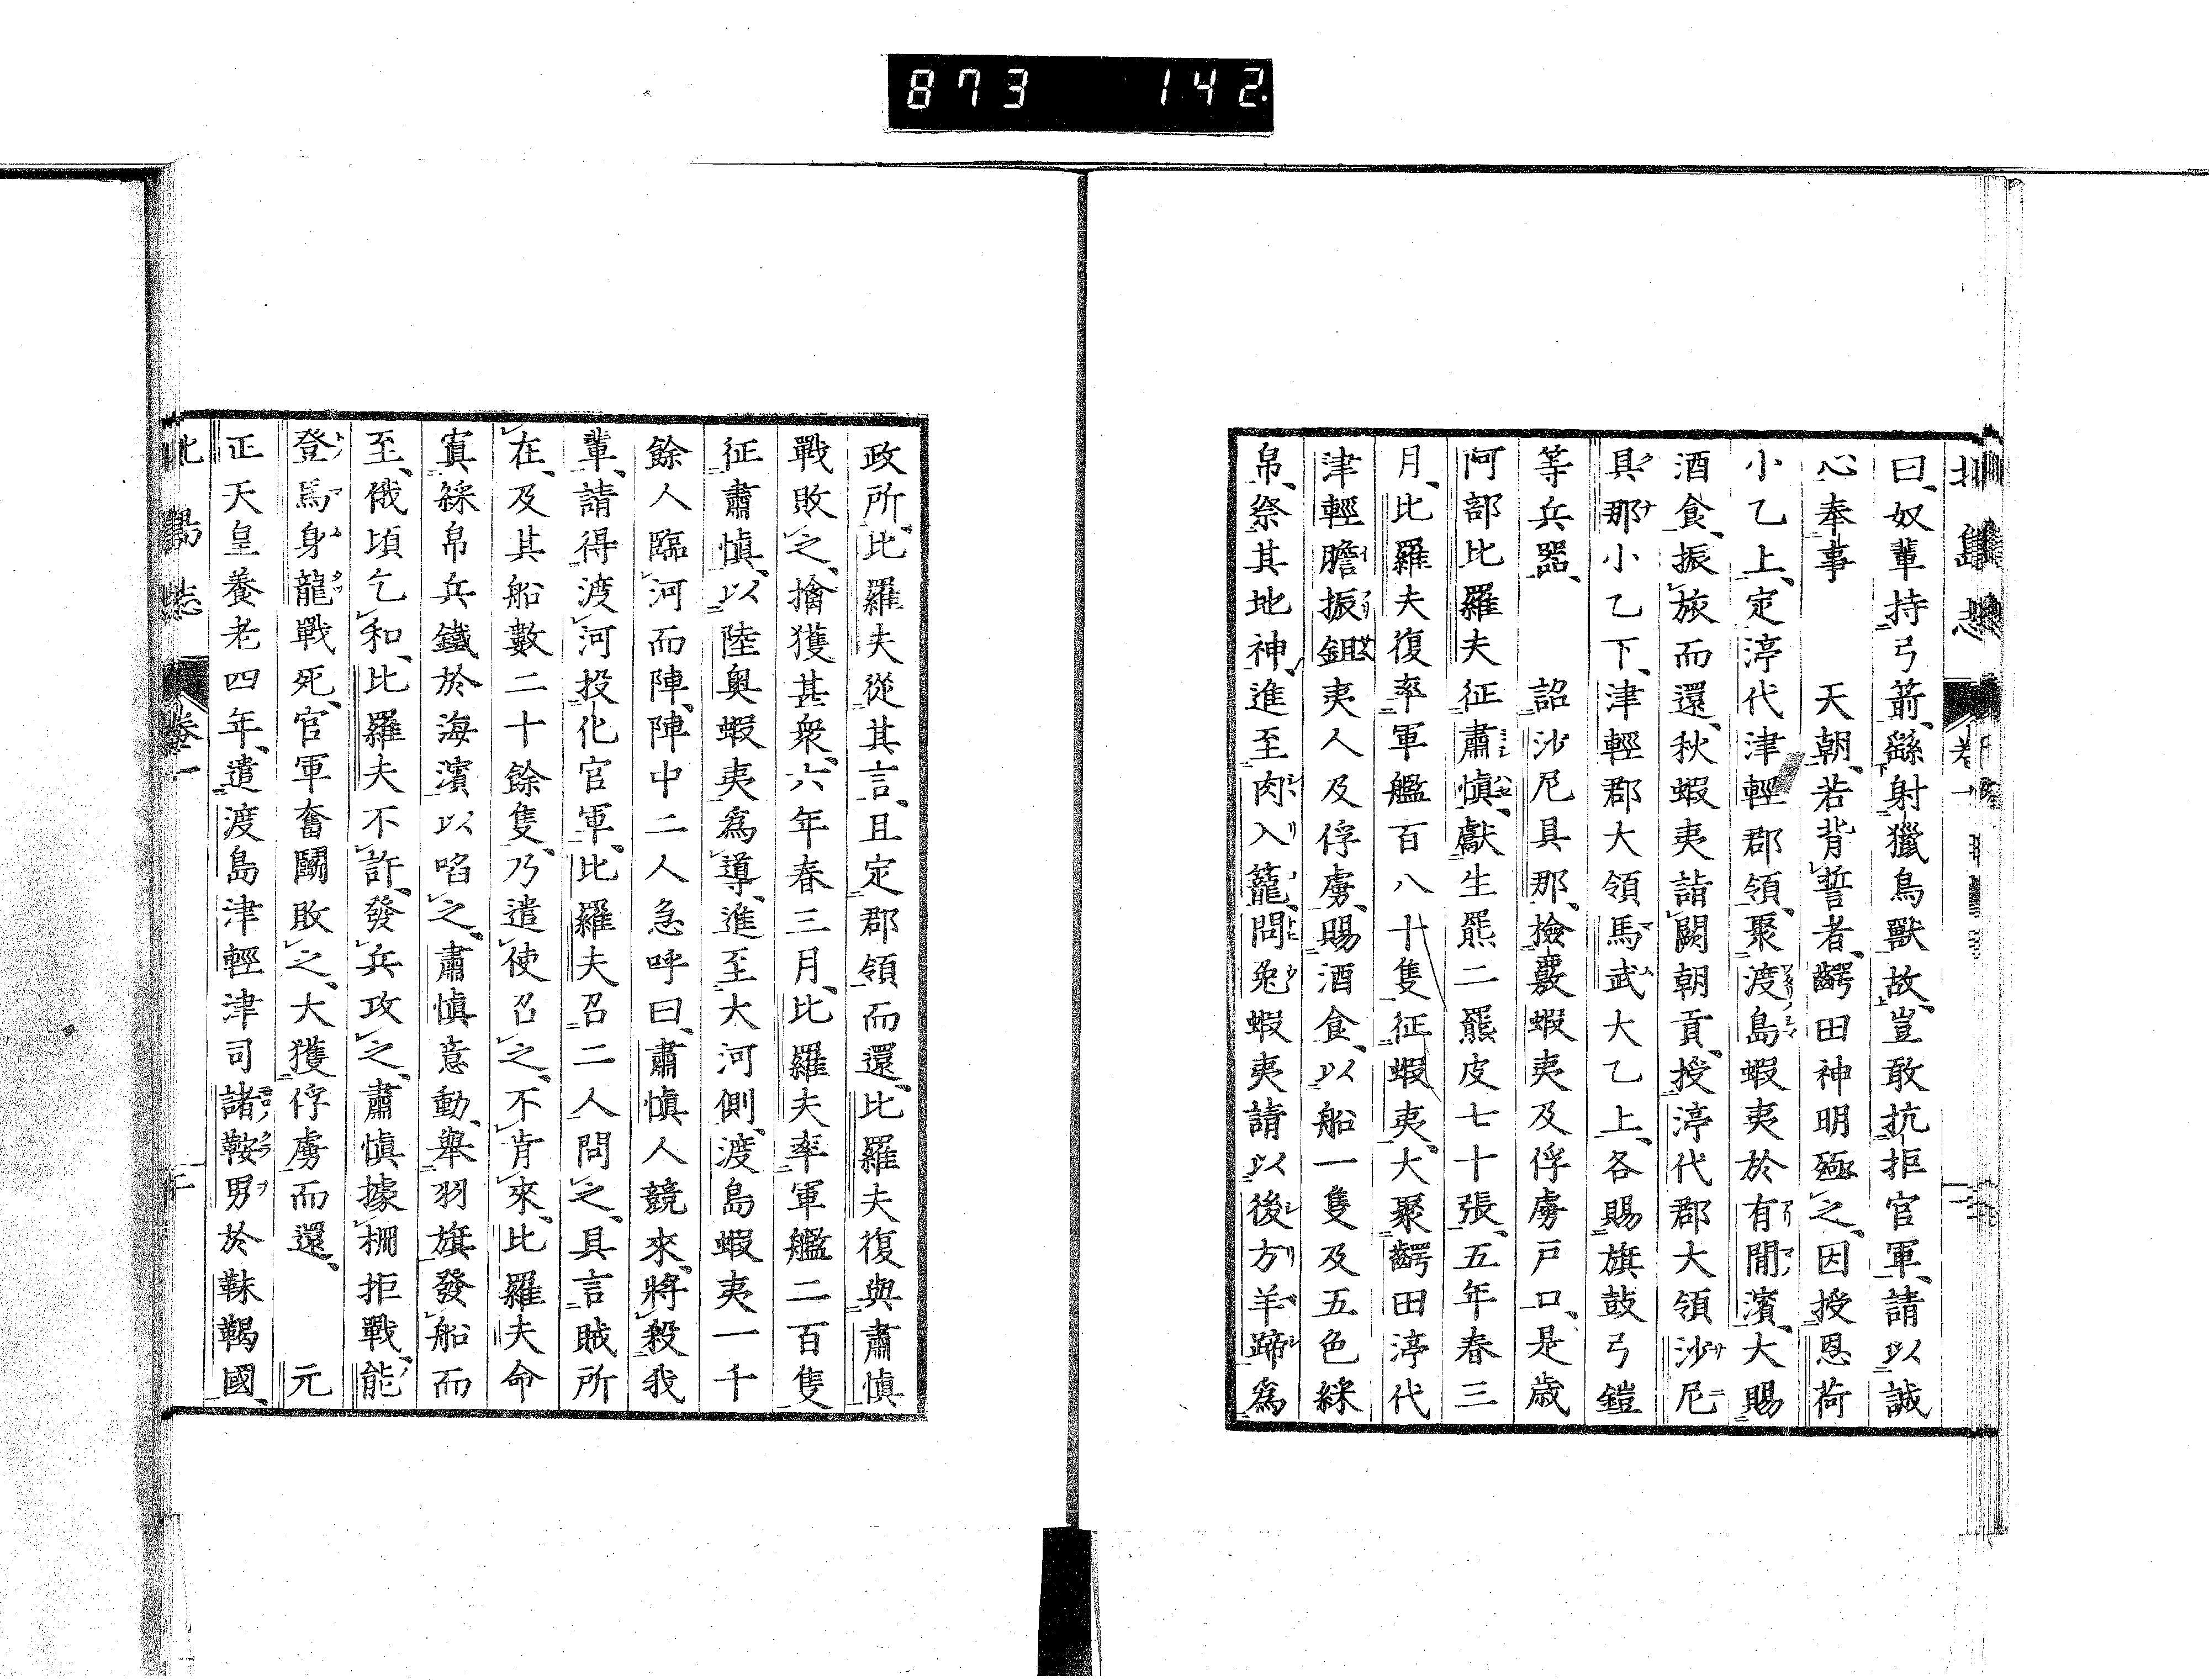 873 142
北島志 卷一
曰、奴輩持弓箭、繇射獵鳥獸故、豈敢抗拒官軍、請以誠
心奉事 天朝、若背誓者、齶田神明殛之、因授恩荷
小乙上、定渟代津輕郡領、聚渡島蝦夷於有間濱、大賜
酒食、振旅而還、秋蝦夷詣闕朝貢、授渟代郡大領沙尼
具那小乙下、津輕郡大領馬武大乙上、各賜旗鼓弓鎧
等兵器、 詔沙尼具那、檢覈蝦夷及俘虜戸口、是歳
阿部比羅夫征肅愼、獻生羆二羆皮七十張、五年春三
月、比羅夫復率軍艦百八十隻、征蝦夷、大聚齶田渟代
津輕膽振鉏夷人及俘虜、賜酒食、以船一隻及五色綵
帛、祭其地神、進至肉入籠、問兔蝦夷請以後方羊蹄爲
政所、比羅夫從其言、且定郡領而還、比羅夫復與肅愼
戰敗之、擒獲甚衆、六年春三月、比羅夫率軍艦二百隻
征肅愼、以陸奥蝦夷爲導、進至大河側、渡島蝦夷一千
餘人臨河而陣、陣中二人急呼曰、肅愼人競來、將殺我
輩、請得渡河投化官軍、比羅夫召二人問之、具言賊所
在、及其船數二十餘隻、乃遣使召之、不肯來、比羅夫命
寘綵帛兵鐵於海濱以啗之、肅愼意動、舉羽旗發船而
至、俄頃乞和、比羅夫不許、發兵攻之、肅愼據柵拒戰、能
登馬身龍戰死、官軍奮鬭敗之、大獲俘虜而還、 元
正天皇養老四年、遣渡島津輕津司諸鞍男於靺鞨國、
北島志 卷一